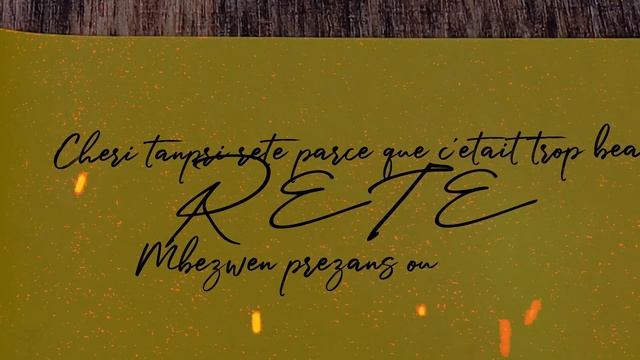 Cheri tanpri rete parce que c'etait trop bea
RETE
Mbezwen prezans ou